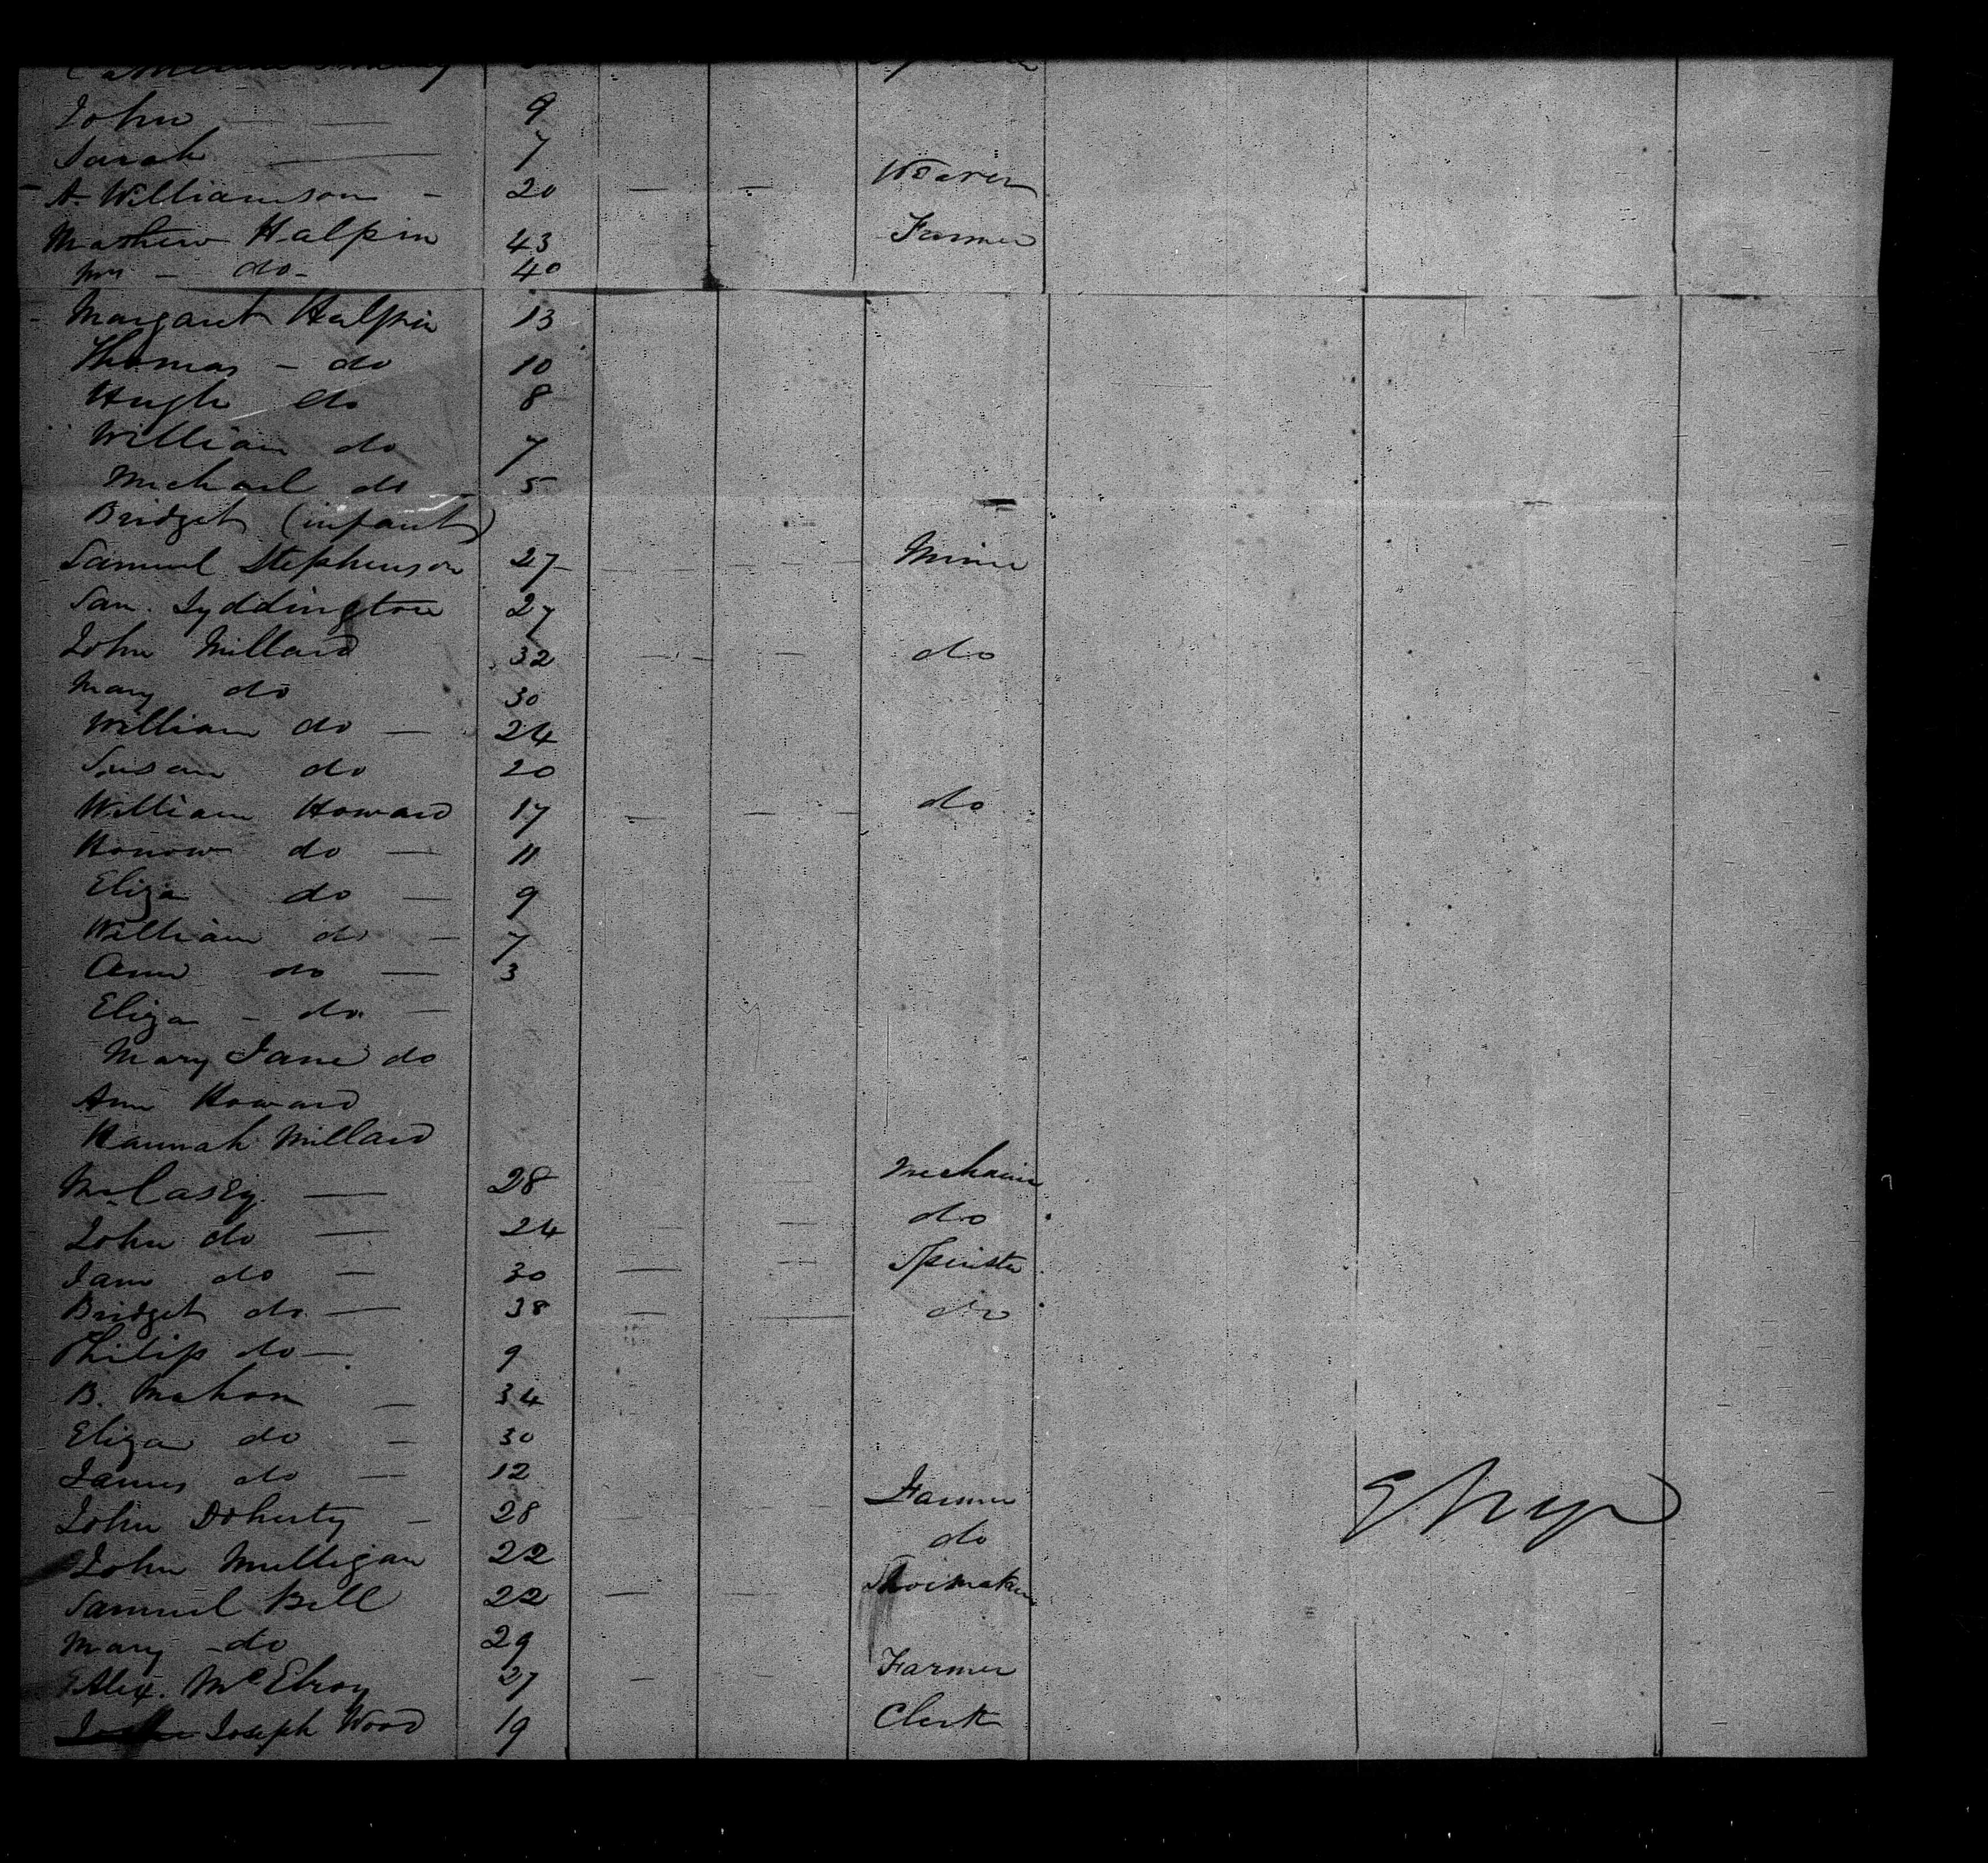 John — — 9
Sarah — 7
A. Williamson — 20 — — Weaver
Mathew Halpin 43 Farmer
Mrs — do — 40
Margaret Halpin 13
Thomas — do 10
Hugh do 8
William do 7
Michael do 5
Bridget (infant)
Samuel Stephenson 27 — — Miner
Sam. Lyddington 27
John Millard 32 — — do
Mary do 30
William do — 24
Susan do 20
William Howard 17 — — do
do — 11
Eliza do — 9
William do — 7
Ann do — 3
Eliza — do —
Mary Jane do
Ann Howard
Hannah Millard
Casey — 28 Mechanic
John do — 24 — — do
Jane do — 30 — — Spinster
Bridget do — 38 — — do
Philip do — 9
B. Mahon — 34
Eliza do — 30
James do — 12
John Doherty — 28 — — Farmer
John Mulligan 22 do
Samuel Bell 22 — Shoemaker
Mary — do 29
Alex. McElroy 27 — — Farmer
Joseph Wood 19 Clerk